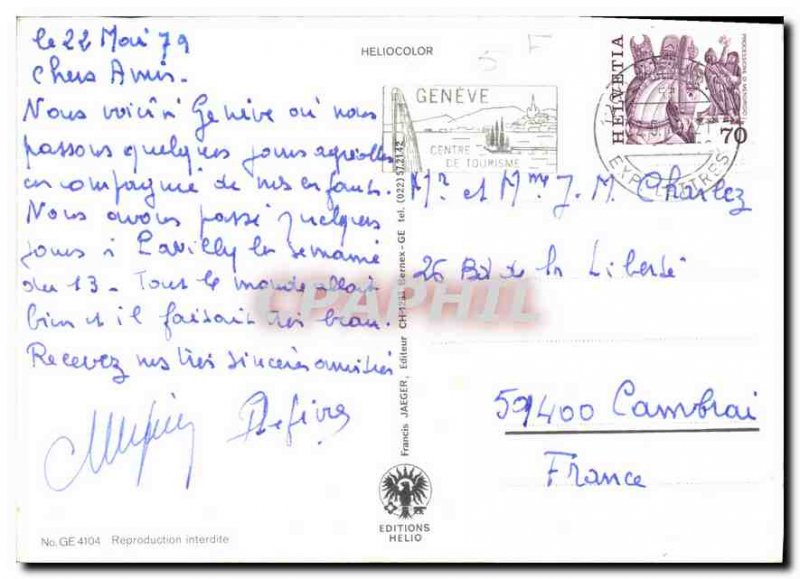 le 22 Mai 79
Chers Amis.
Nous voici à Genève où nous
passons quelques jours agréables
en compagnie de nos enfants.
Nous avons passé quelques
jours à Pavilly la semaine
du 13 - Tout le monde allait
bien et il faisait très beau.
Recevez nos très sincères amitiés
No. GE 4104 Reproduction interdite
HELIOCOLOR
Francis JAEGER, Editeur CH-1233 Bernex-GE tel. (022) 57 21 42
EDITIONS
HELIO
GENÈVE
CENTRE
DE TOURISME
HELVETIA
70
Mr et Mme J. M. Charlez
26 Bd de la Liberté
59400 Cambrai
France
CPAPHIL